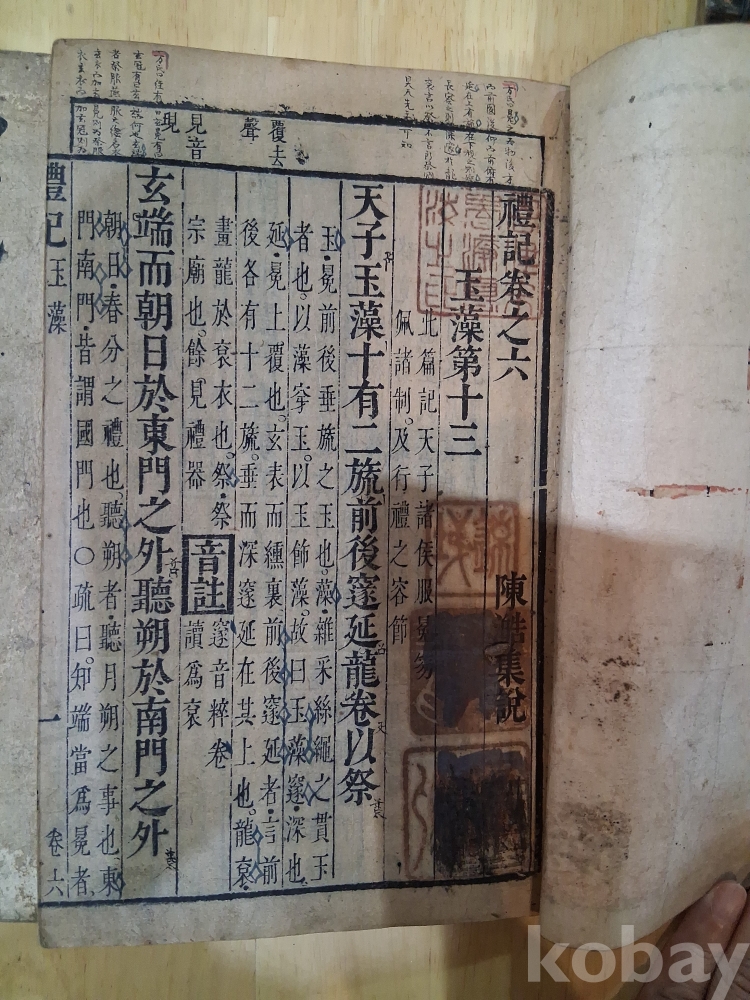 禮記卷之六
陳澔集說
玉藻第十三
此篇記天子諸侯服冕笏
佩諸制及行禮之容節
天子玉藻十有二旒前後邃延龍卷以祭
玉冕前後垂旒之玉也藻雜采絲繩之貫玉
者也以藻穿玉以玉飾藻故曰玉藻邃深也
延冕上覆也玄表而纁裏前後邃延者言前
後各有十二旒垂而深邃延在其上也龍衮
畫龍於衮衣也祭祭
宗廟也餘見禮器
音註
邃音粹卷
讀爲衮
玄端而朝日於東門之外聽朔於南門之外
朝日春分之禮也聽朔者聽月朔之事也東
門南門皆謂國門也○疏曰知端當爲冕者
覆去
聲
見音
現
禮記
玉藻
一
卷六
kobay